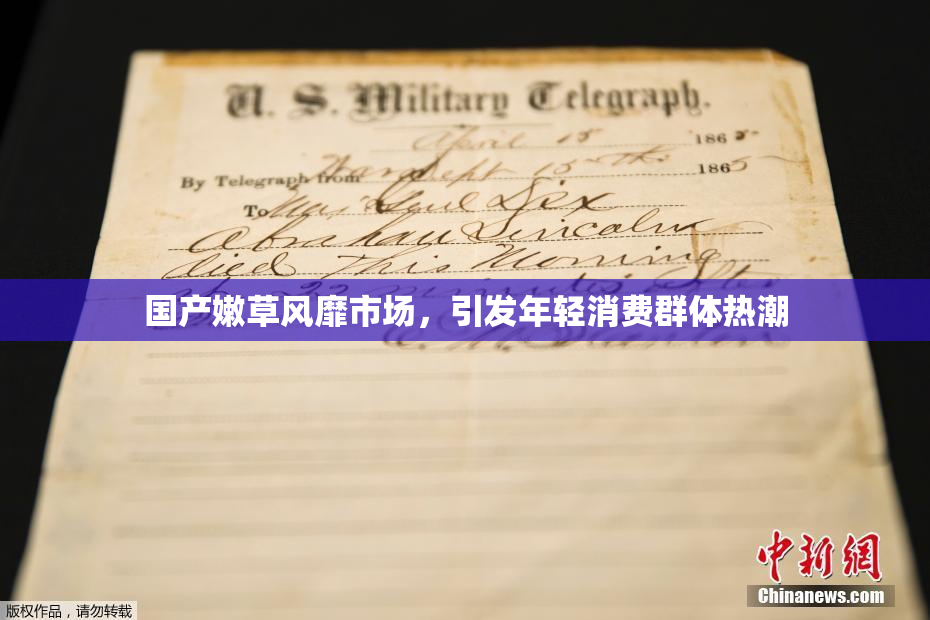 U. S. Military Telegraph.
April 15 1865
By Telegraph from War Dept 15th 1865
To Maj Genl Dix
Abraham Lincoln
died This Morning
22 minutes after
国产嫩草风靡市场，引发年轻消费群体热潮
E. M. Stanton
中新網
Chinanews.com
版权作品，请勿转载